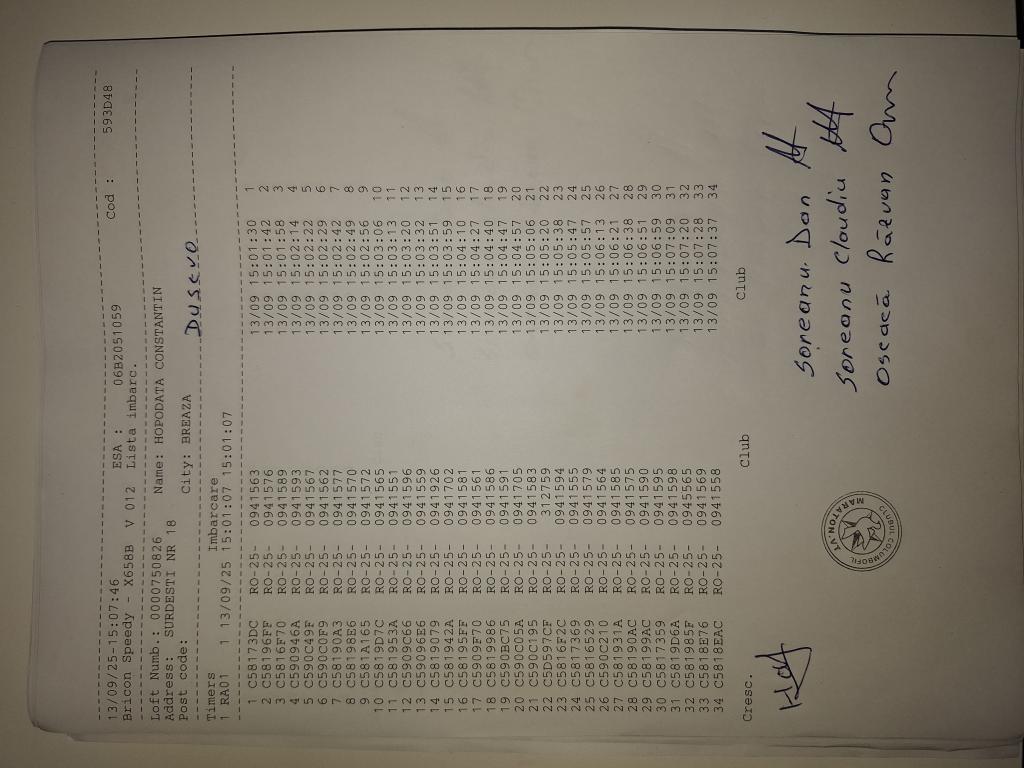 13/09/25-15:07:46 ESA : 06B2051059 Cod : 593D48
Bricon Speedy - X658B V 012 Lista imbarc.
Loft Numb.: 0000750826 Name: HOPODATA CONSTANTIN
Address: SURDESTI NR 18
Post code: City: BREAZA Dusevo
Timers Imbarcare
1 RA01 1 13/09/25 15:01:07 15:01:07
1 C58173DC RO-25- 0941563 13/09 15:01:30 1
2 C5819EFF RO-25- 0941576 13/09 15:01:42 2
3 C5816F70 RO-25- 0941589 13/09 15:01:58 3
4 C590946A RO-25- 0941593 13/09 15:02:14 4
5 C590C49F RO-25- 0941567 13/09 15:02:22 5
6 C590C0F9 RO-25- 0941562 13/09 15:02:29 6
7 C58190A3 RO-25- 0941577 13/09 15:02:42 7
8 C58198E6 RO-25- 0941570 13/09 15:02:49 8
9 C581A165 RO-25- 0941572 13/09 15:02:56 9
10 C5819D7C RO-25- 0941565 13/09 15:03:06 10
11 C5819F3A RO-25- 0941551 13/09 15:03:13 11
12 C5909C66 RO-25- 0941596 13/09 15:03:20 12
13 C59096E6 RO-25- 0941559 13/09 15:03:32 13
14 C5819079 RO-25- 0941926 13/09 15:03:51 14
15 C581942A RO-25- 0941702 13/09 15:03:59 15
16 C58195FF RO-25- 0941581 13/09 15:04:10 16
17 C5909F70 RO-25- 0941561 13/09 15:04:27 17
18 C5819986 RO-25- 0941586 13/09 15:04:40 18
19 C590BC75 RO-25- 0941591 13/09 15:04:47 19
20 C590CC5A RO-25- 0941705 13/09 15:04:57 20
21 C590C195 RO-25- 0941583 13/09 15:05:06 21
22 C5D597CF RO-25- 312759 13/09 15:05:20 22
23 C5816F2C RO-25- 0941594 13/09 15:05:38 23
24 C5817369 RO-25- 0941555 13/09 15:05:47 24
25 C5816529 RO-25- 0941579 13/09 15:05:57 25
26 C590C210 RO-25- 0941564 13/09 15:06:13 26
27 C581931A RO-25- 0941585 13/09 15:06:21 27
28 C58190AC RO-25- 0941575 13/09 15:06:38 28
29 C58199AC RO-25- 0941590 13/09 15:06:51 29
30 C5817359 RO-25- 0941595 13/09 15:06:59 30
31 C5819D6A RO-25- 0941598 13/09 15:07:09 31
32 C581985F RO-25- 0945565 13/09 15:07:20 32
33 C5818E76 RO-25- 0941569 13/09 15:07:28 33
34 C5818EAC RO-25- 0941558 13/09 15:07:37 34
Cresc. Club Club
Soreanu Dan
Soreanu Claudiu
Oseacă Răzvan
CLUBUL COLUMBOFIL
MARATON V.J.